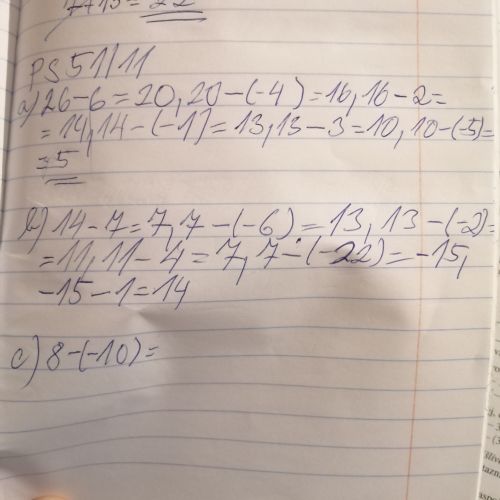 7+15= 22
PS 51/11
a) 26-6=20, 20-(-4)=16, 16-2=
=14, 14-(-1)=13, 13-3=10, 10-(-5)=
=5
b) 14-7=7, 7-(-6)=13, 13-(-2)=
=11, 11-4=7, 7-(-22)=-15,
-15-1=14
c) 8-(-10)=